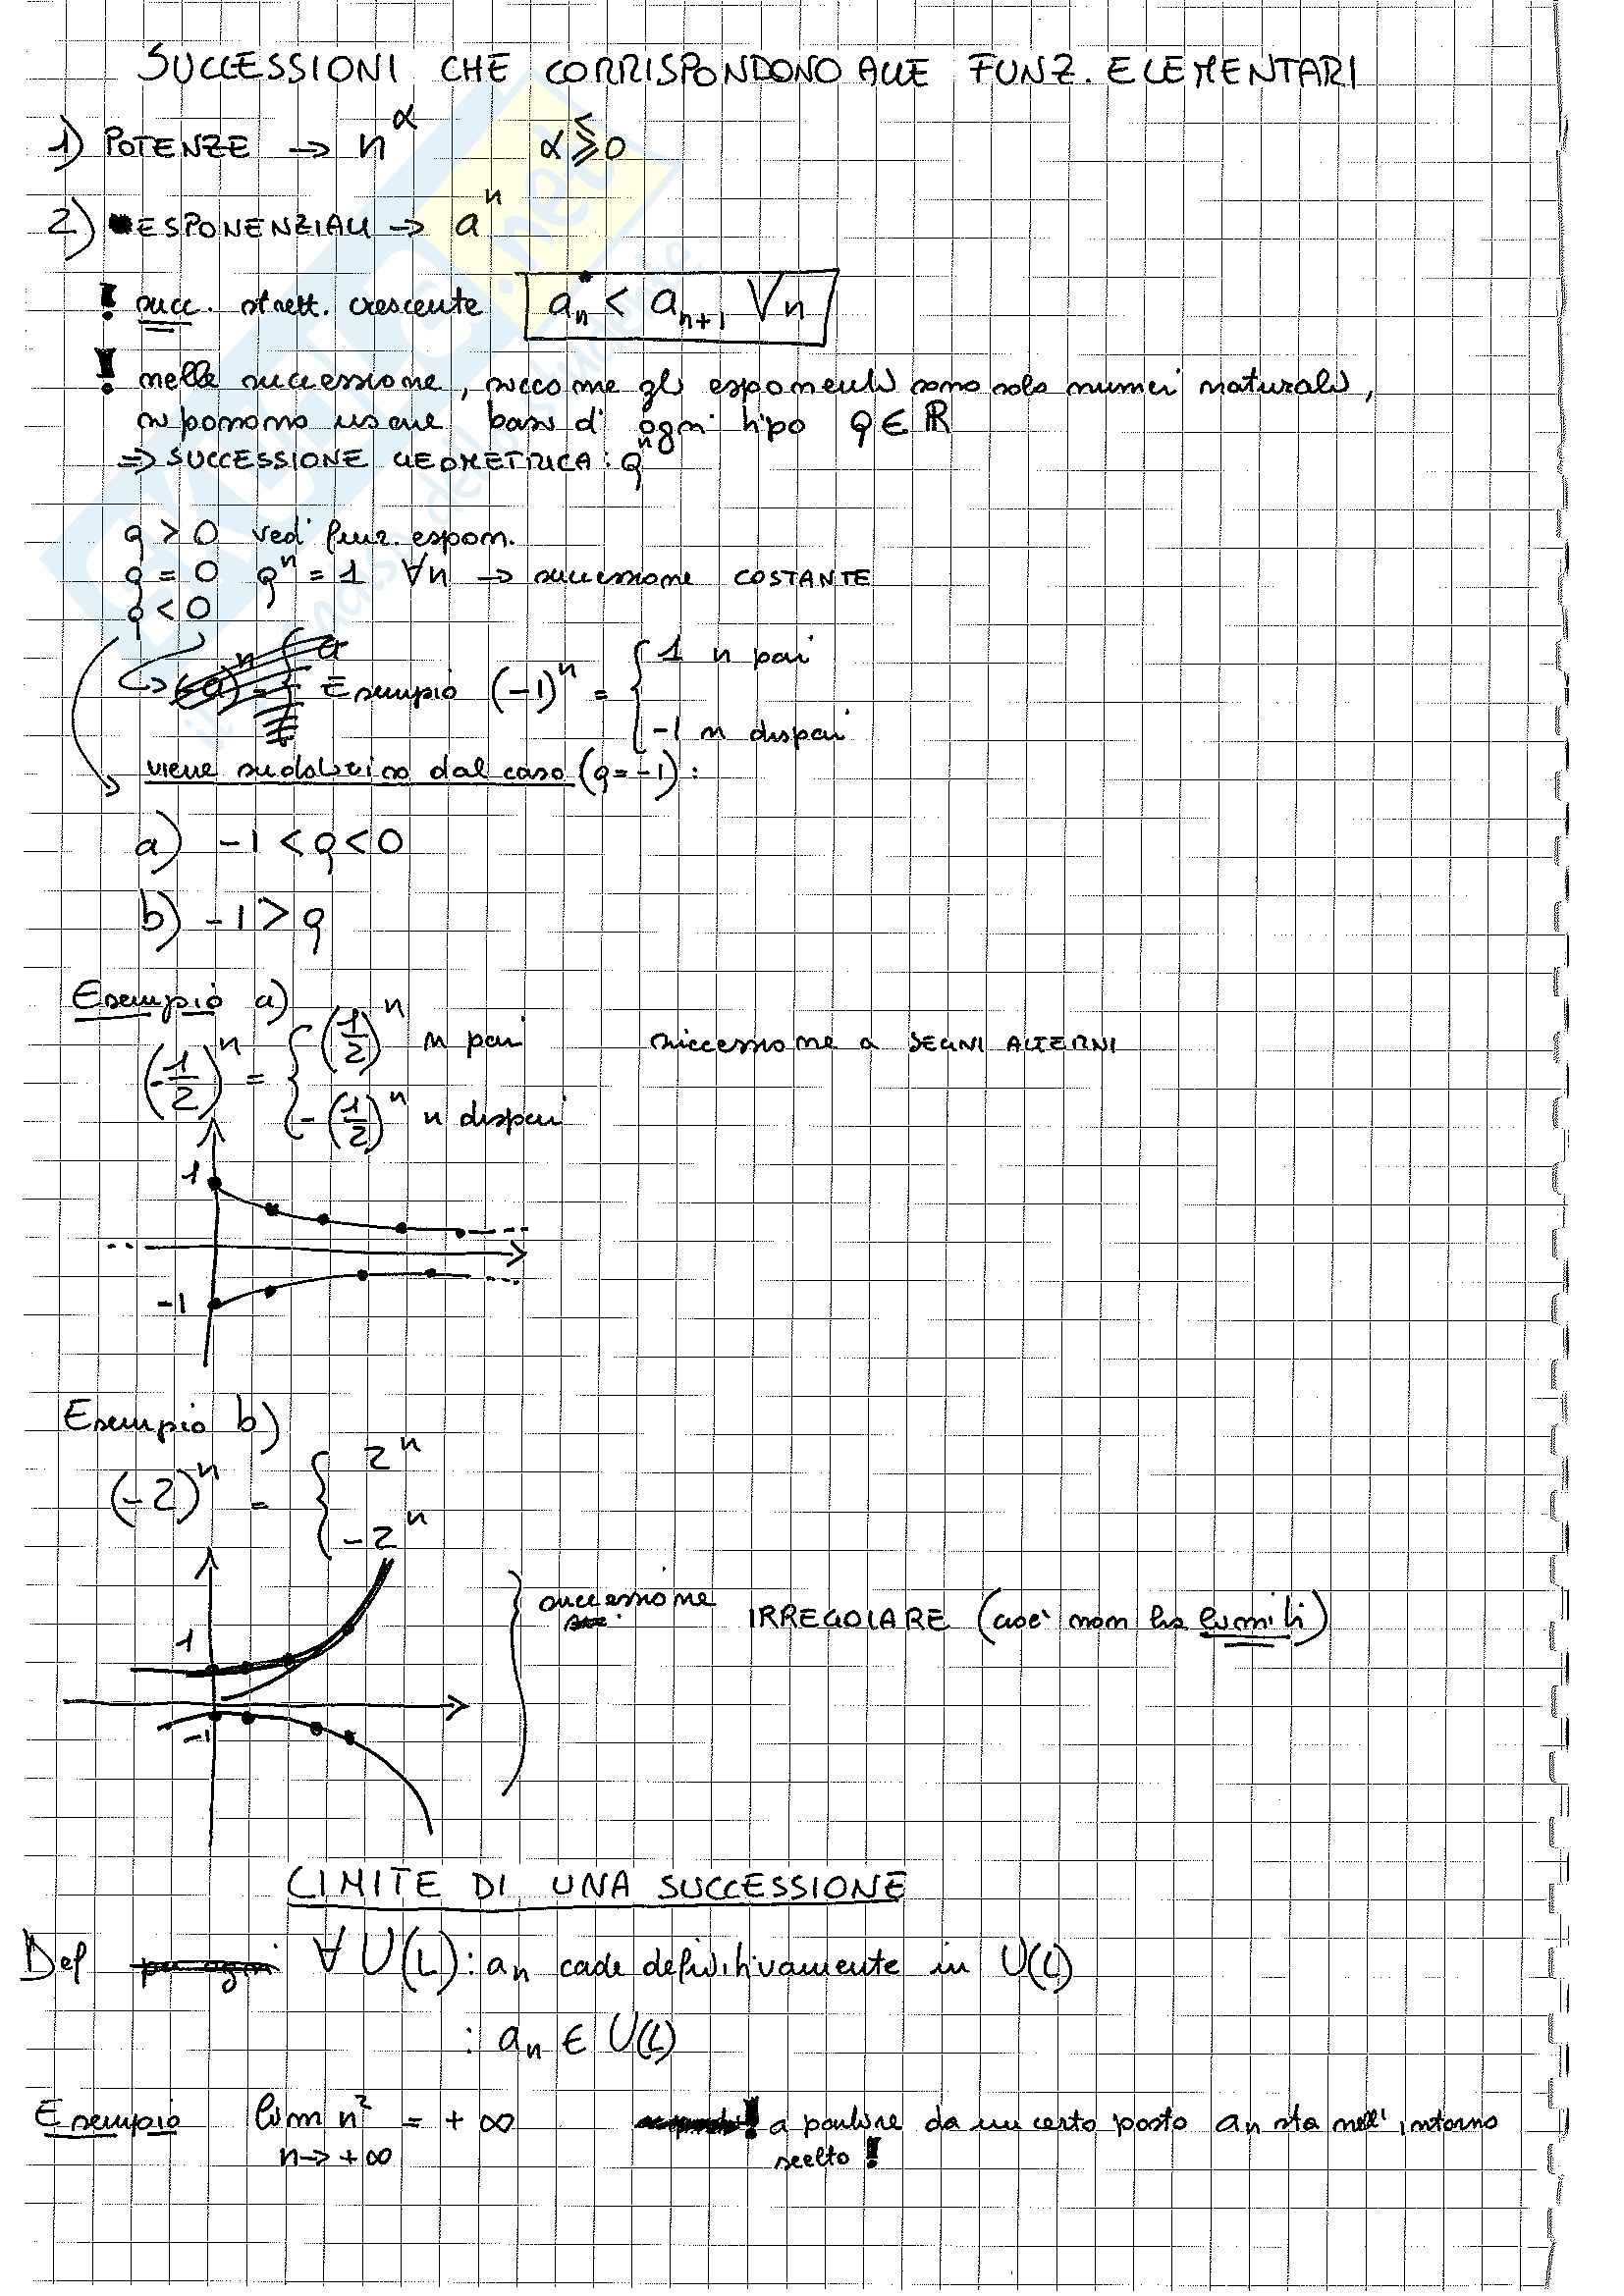 SUCCESSIONI CHE CORRISPONDONO ALLE FUNZ. ELEMENTARI
1) POTENZE → n^α α ⪌ 0
2) ESPONENZIALI → a^n
! succ. strett. crescente a_n < a_{n+1} ∀n
! nelle successione, siccome gli esponenti sono solo numeri naturali,
si possono usare basi di ogni tipo q ∈ ℝ
⇒ SUCCESSIONE GEOMETRICA: q^n
q > 0 vedi funz. espon.
q = 0 q^n = 1 ∀n → successione COSTANTE
q < 0
Esempio (-1)^n = { 1 n pari
-1 n dispari
viene suddiviso dal caso (q=-1):
a) -1 < q < 0
b) -1 > q
Esempio a)
(-1/2)^n = { (1/2)^n n pari successione a SEGNI ALTERNI
-(1/2)^n n dispari
1
-1
Esempio b)
(-2)^n = { 2^n
-2^n
successione IRREGOLARE (cioè non ha limiti)
1
-1
LIMITE DI UNA SUCCESSIONE
Def ∀ U(L): a_n cade definitivamente in U(L)
: a_n ∈ U(L)
Esempio lim n² = +∞ ! a partire da un certo posto a_n sta nell'intorno
n→+∞ scelto !